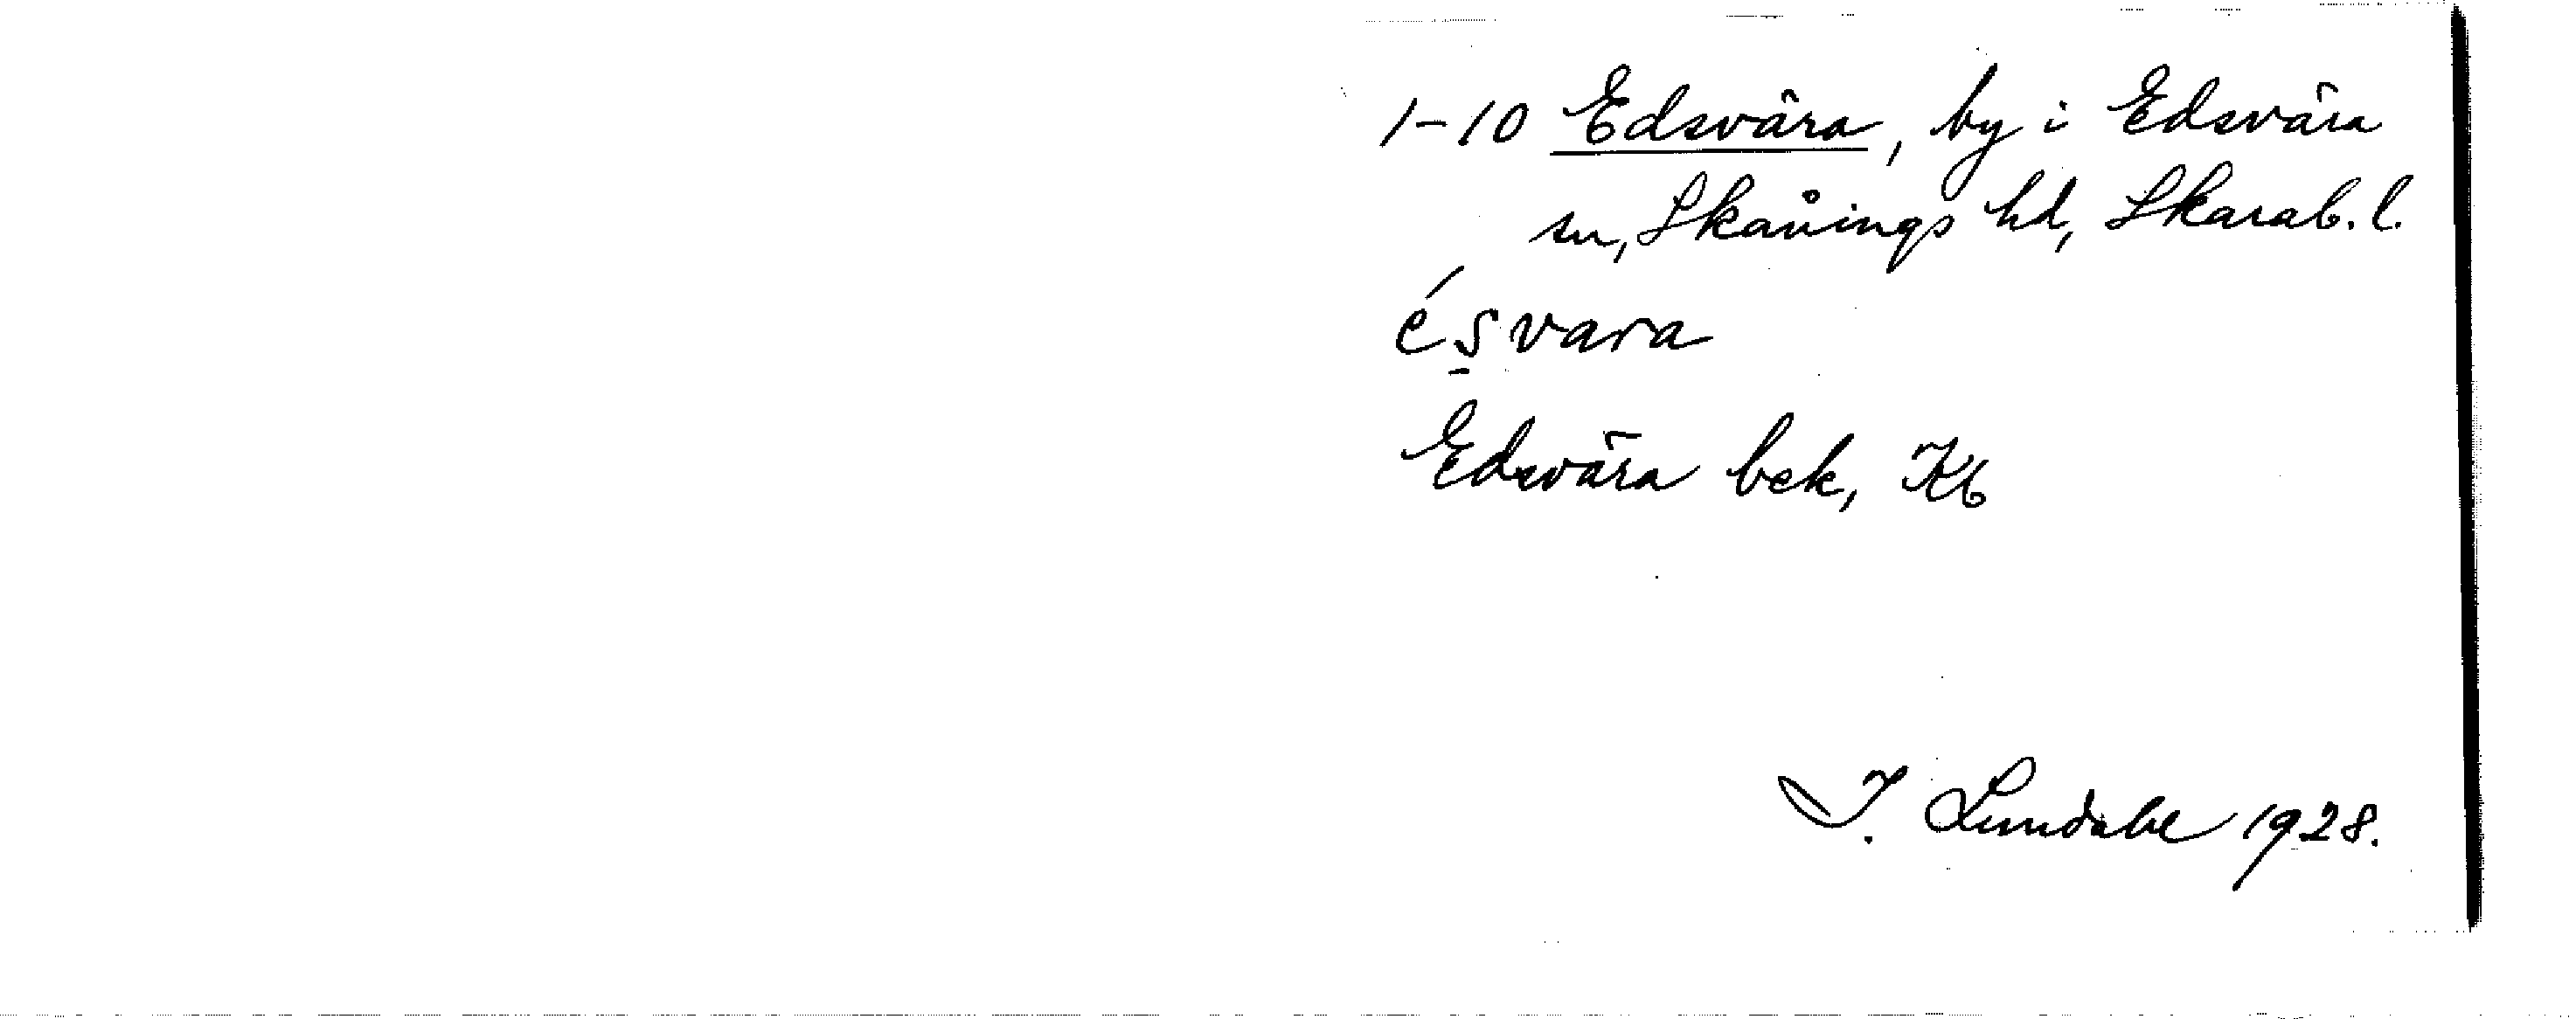 1-10 Edsvära, by i Edsvära
sn, Skånings hd, Skarab. l.
ésvara
Edsvära bek, Kb
I. Lundahl 1928.